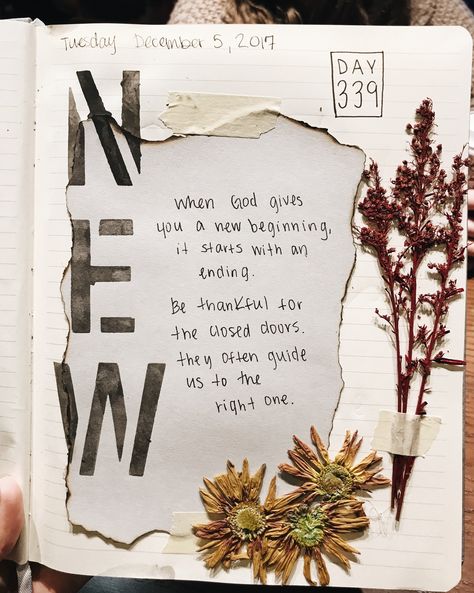 Tuesday December 5, 2017
DAY
339
NEW
when God gives
you a new beginning,
it starts with an
ending.
Be thankful for
the closed doors.
they often guide
us to the
right one.